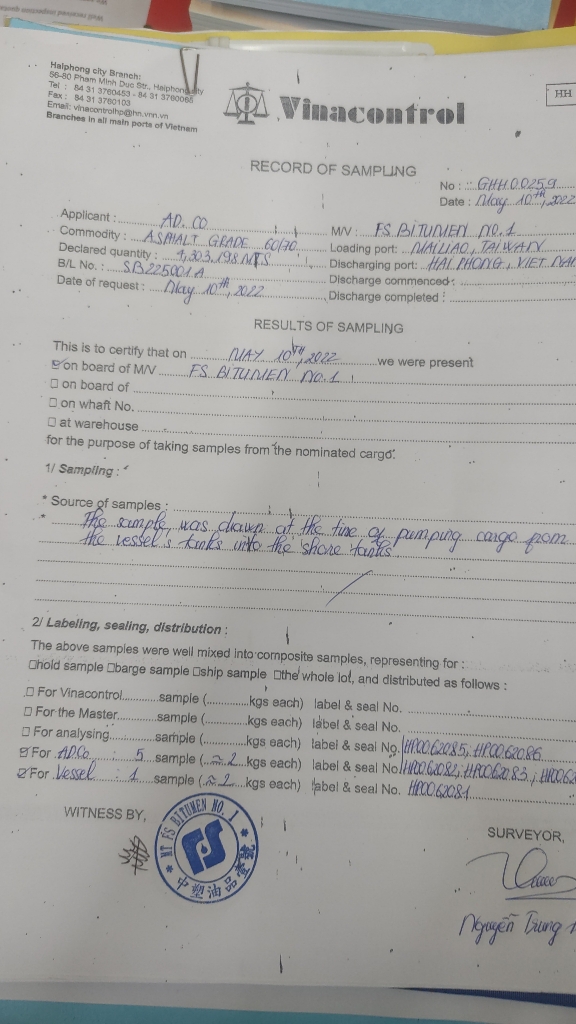 Haiphong city Branch:
56-60 Pham Minh Duc Str., Haiphong city
Tel : 84 31 3760453 - 84 31 3760065
Fax : 84 31 3760103
Email: vinacontrolhp@hn.vnn.vn
Branches in all main ports of Vietnam
Vinacontrol
HH
RECORD OF SAMPLING
No : GHH00259
Date : May 10th, 2022
Applicant : AD.CO
M/V : FS BITUMEN NO.1
Commodity : ASPHALT GRADE 60/70
Loading port: MAILIAO, TAIWAN
Declared quantity : 1,303.198 MTS
Discharging port: HAI PHONG, VIET NAM
B/L No. : SB225001A
Discharge commenced :
Date of request : May 10th, 2022
Discharge completed :
RESULTS OF SAMPLING
This is to certify that on MAY 10TH, 2022 we were present
☑ on board of M/V FS BITUMEN NO.1
☐ on board of
☐ on whaft No.
☐ at warehouse
for the purpose of taking samples from the nominated cargo:
1/ Sampling :
* Source of samples :
* The sample was drawn at the time of pumping cargo from
the vessel's tanks into the shore tanks
2/ Labeling, sealing, distribution :
The above samples were well mixed into composite samples, representing for :
☐hold sample ☐barge sample ☐ship sample ☐the whole lot, and distributed as follows :
☐ For Vinacontrol sample ( kgs each) label & seal No.
☐ For the Master sample ( kgs each) label & seal No.
☐ For analysing sample ( kgs each) label & seal No. HP0062085, HP0062086
☑ For ADCo : 5 sample (≈ 2 kgs each) label & seal No. HP0062082, HP0062083,
☑ For Vessel : 1 sample (≈ 2 kgs each) label & seal No. HP0062081
WITNESS BY,
SURVEYOR,
MT FS BITUMEN NO. 1
FS
中塑油品壹號
Nguyễn Trung